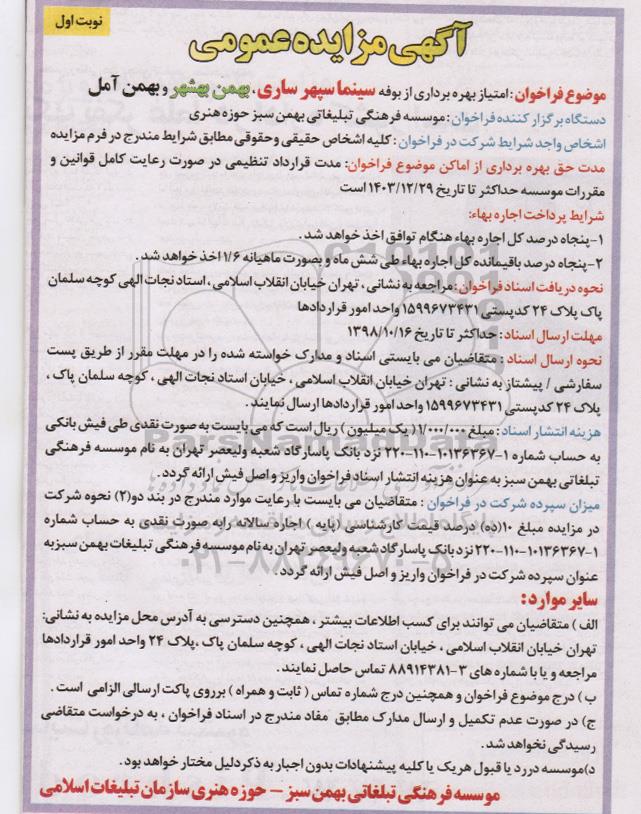 نوبت اول
آگهی مزایده عمومی
موضوع فراخوان : امتیاز بهره برداری از بوفه سینما سپهر ساری ، بهمن بهشهر و بهمن آمل
دستگاه برگزار کننده فراخوان : موسسه فرهنگی تبلیغاتی بهمن سبز حوزه هنری
اشخاص واجد شرایط شرکت در فراخوان : کلیه اشخاص حقیقی و حقوقی مطابق شرایط مندرج در فرم مزایده
مدت حق بهره برداری از اماکن موضوع فراخوان: مدت قرارداد تنظیمی در صورت رعایت کامل قوانین و
مقررات موسسه حداکثر تا تاریخ ۱۴۰۳/۱۲/۲۹ است
شرایط پرداخت اجاره بهاء:
۱-پنجاه درصد کل اجاره بهاء هنگام توافق اخذ خواهد شد .
۲-پنجاه درصد باقیمانده کل اجاره بهاء طی شش ماه و بصورت ماهیانه ۱/۶ اخذ خواهد شد .
نحوه دریافت اسناد فراخوان : مراجعه به نشانی ، تهران خیابان انقلاب اسلامی ، استاد نجات الهی کوچه سلمان
پاک پلاک ۲۴ کدپستی ۱۵۹۹۶۷۳۴۳۱ واحد امور قراردادها
مهلت ارسال اسناد : حداکثر تا تاریخ ۱۳۹۸/۱۰/۱۶
نحوه ارسال اسناد : متقاضیان می بایستی اسناد و مدارک خواسته شده را در مهلت مقرر از طریق پست
سفارشی / پیشتاز به نشانی : تهران خیابان انقلاب اسلامی ، خیابان استاد نجات الهی ، کوچه سلمان پاک ،
پلاک ۲۴ کدپستی ۱۵۹۹۶۷۳۴۳۱ واحد امور قراردادها ارسال نمایند .
هزینه انتشار اسناد : مبلغ ۱/۰۰۰/۰۰۰ ( یک میلیون ) ریال است که می بایست به صورت نقدی طی فیش بانکی
به حساب شماره ۱-۱۰۱۳۶۳۶۷-۱۱۰-۲۲۰ نزد بانک پاسارگاد شعبه ولیعصر تهران به نام موسسه فرهنگی
تبلغاتی بهمن سبز به عنوان هزینه انتشار اسناد فراخوان واریز و اصل فیش ارائه گردد .
میزان سپرده شرکت در فراخوان : متقاضیان می بایست با رعایت موارد مندرج در بند دو(۲) نحوه شرکت
در مزایده مبلغ ۱۰(ده) درصد قیمت کارشناسی (پایه ) اجاره سالانه رابه صورت نقدی به حساب شماره
۱-۱۰۱۳۶۳۶۷-۱۱۰-۲۲۰ نزد بانک پاسارگاد شعبه ولیعصر تهران به نام موسسه فرهنگی تبلیغات بهمن سبز به
عنوان سپرده شرکت در فراخوان واریز و اصل فیش ارائه گردد .
سایر موارد:
الف ) متقاضیان می توانند برای کسب اطلاعات بیشتر ، همچنین دسترسی به آدرس محل مزایده به نشانی:
تهران خیابان انقلاب اسلامی ، خیابان استاد نجات الهی ، کوچه سلمان پاک ،پلاک ۲۴ واحد امور قراردادها
مراجعه و یا با شماره های ۳-۸۸۹۱۴۳۸۱ تماس حاصل نمایند .
ب ) درج موضوع فراخوان و همچنین درج شماره تماس ( ثابت و همراه ) برروی پاکت ارسالی الزامی است .
ج) در صورت عدم تکمیل و ارسال مدارک مطابق مفاد مندرج در اسناد فراخوان ، به درخواست متقاضی
رسیدگی نخواهد شد .
د)موسسه در رد یا قبول هریک یا کلیه پیشنهادات بدون اجبار به ذکر دلیل مختار خواهد بود .
موسسه فرهنگی تبلغاتی بهمن سبز – حوزه هنری سازمان تبلیغات اسلامی
ParsNamadData
۰۲۱-۸۸۳۴۹۶۷۰-۵